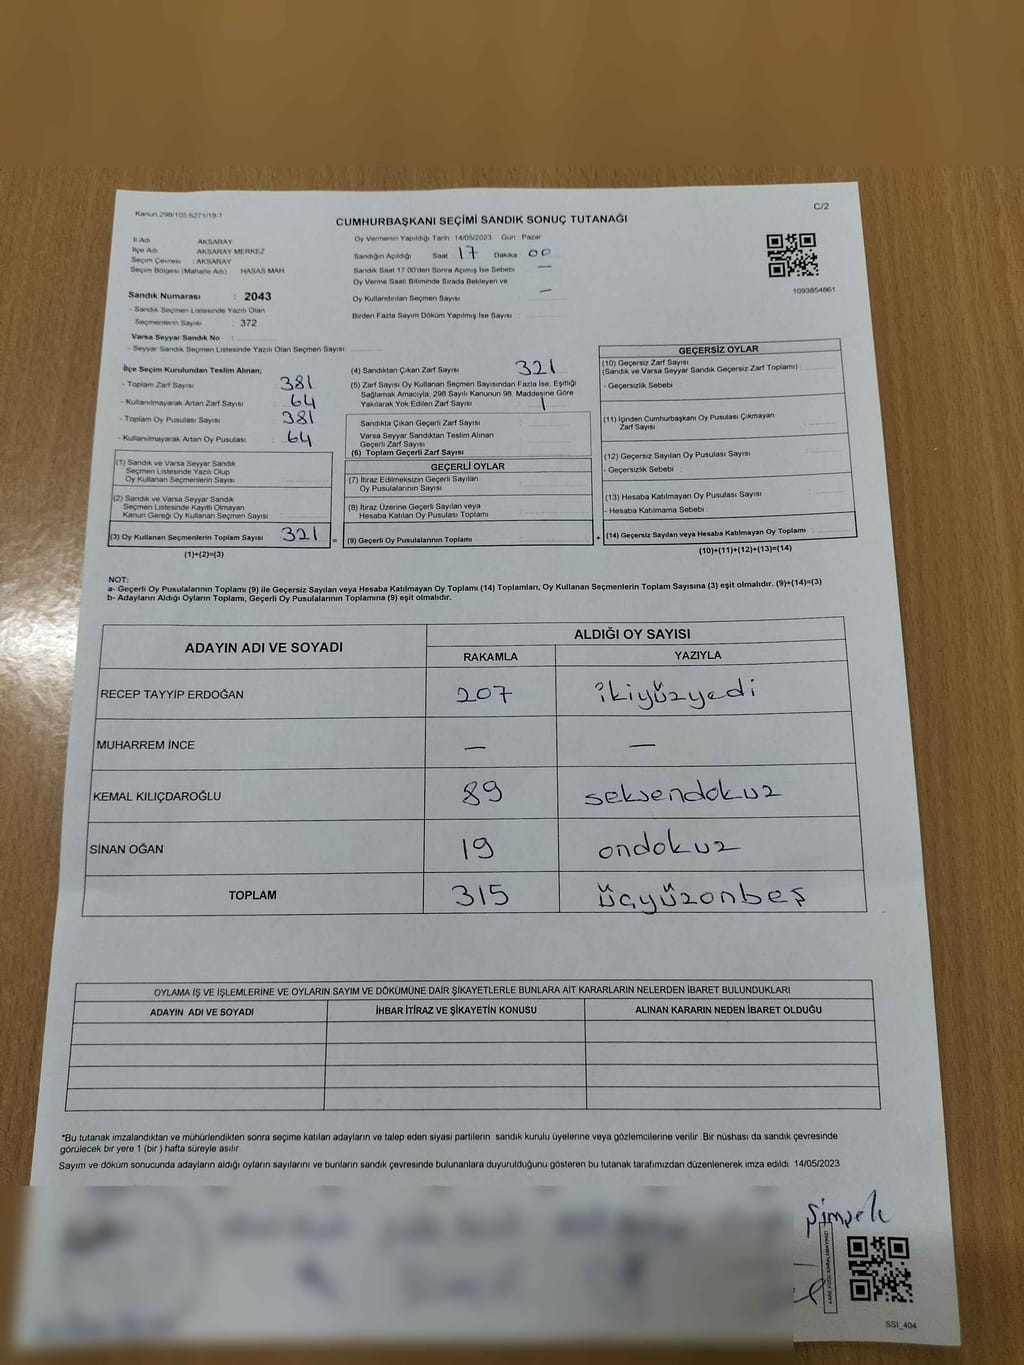 Kanun.298/105,6271/18-1
C/2
CUMHURBAŞKANI SEÇİMİ SANDIK SONUÇ TUTANAĞI
İl Adı AKSARAY
İlçe Adı AKSARAY MERKEZ
Seçim Çevresi : AKSARAY
Seçim Bölgesi (Mahalle Adı) HASAS MAH
Sandık Numarası : 2043
- Sandık Seçmen Listesinde Yazılı Olan
Seçmenlerin Sayısı : 372
Varsa Seyyar Sandık No :
- Seyyar Sandık Seçmen Listesinde Yazılı Olan Seçmen Sayısı:
Oy Vermenin Yapıldığı Tarih 14/05/2023 Gün Pazar
Sandığın Açıldığı Saat 17 Dakika 00
Sandık Saat 17 00'den Sonra Açımış İse Sebebi —
Oy Verme Saati Bitiminde Sırada Bekleyen ve
Oy Kullandırılan Seçmen Sayısı —
Birden Fazla Sayım Döküm Yapılmış İse Sayısı
1093854861
İlçe Seçim Kurulundan Teslim Alınan;
- Toplam Zarf Sayısı 381
- Kullanılmayarak Artan Zarf Sayısı 64
- Toplam Oy Pusulası Sayısı 381
- Kullanılmayarak Artan Oy Pusulası 64
(1) Sandık ve Varsa Seyyar Sandık
Seçmen Listesinde Yazılı Olup
Oy Kullanan Seçmenlerin Sayısı
(2) Sandık ve Varsa Seyyar Sandık
Seçmen Listesinde Kayıtlı Olmayan
Kanun Gereği Oy Kullanan Seçmen Sayısı :
(3) Oy Kullanan Seçmenlerin Toplam Sayısı 321 =
(1)+(2)=(3)
(4) Sandıktan Çıkan Zarf Sayısı 321
(5) Zarf Sayısı Oy Kullanan Seçmen Sayısından Fazla İse, Eşitliği
Sağlamak Amacıyla; 298 Sayılı Kanunun 98. Maddesine Göre
Yakılarak Yok Edilen Zarf Sayısı 1
Sandıkta Çıkan Geçerli Zarf Sayısı
Varsa Seyyar Sandıktan Teslim Alınan
Geçerli Zarf Sayısı
(6) Toplam Geçerli Zarf Sayısı
GEÇERLİ OYLAR
(7) İtiraz Edilmeksizin Geçerli Sayılan
Oy Pusulalarının Sayısı
(8) İtiraz Üzerine Geçerli Sayılan veya
Hesaba Katılan Oy Pusulası Toplamı
(9) Geçerli Oy Pusulalarının Toplamı +
GEÇERSİZ OYLAR
(10) Geçersiz Zarf Sayısı
(Sandık ve Varsa Seyyar Sandık Geçersiz Zarf Toplamı)
- Geçersizlik Sebebi
(11) İçinden Cumhurbaşkanı Oy Pusulası Çıkmayan
Zarf Sayısı
(12) Geçersiz Sayılan Oy Pusulası Sayısı
- Geçersizlik Sebebi
(13) Hesaba Katılmayan Oy Pusulası Sayısı
- Hesaba Katılmama Sebebi
(14) Geçersiz Sayılan veya Hesaba Katılmayan Oy Toplamı
(10)+(11)+(12)+(13)=(14)
NOT:
a- Geçerli Oy Pusulalarının Toplamı (9) ile Geçersiz Sayılan veya Hesaba Katılmayan Oy Toplamı (14) Toplamları, Oy Kullanan Seçmenlerin Toplam Sayısına (3) eşit olmalıdır. (9)+(14)=(3)
b- Adayların Aldığı Oyların Toplamı, Geçerli Oy Pusulalarının Toplamına (9) eşit olmalıdır.
ADAYIN ADI VE SOYADI ALDIĞI OY SAYISI
RAKAMLA YAZIYLA
RECEP TAYYİP ERDOĞAN 207 ikiyüzyedi
MUHARREM İNCE — —
KEMAL KILIÇDAROĞLU 89 seksendokuz
SİNAN OĞAN 19 ondokuz
TOPLAM 315 üçyüzonbeş
OYLAMA İŞ VE İŞLEMLERİNE VE OYLARIN SAYIM VE DÖKÜMÜNE DAİR ŞİKAYETLERLE BUNLARA AİT KARARLARIN NELERDEN İBARET BULUNDUKLARI
ADAYIN ADI VE SOYADI İHBAR İTİRAZ VE ŞİKAYETİN KONUSU ALINAN KARARIN NEDEN İBARET OLDUĞU
*Bu tutanak imzalandıktan ve mühürlendikten sonra seçime katılan adayların ve talep eden siyasi partilerin sandık kurulu üyelerine veya gözlemcilerine verilir. Bir nüshası da sandık çevresinde
görülecek bir yere 1 (bir ) hafta süreyle asılır
Sayım ve döküm sonucunda adayların aldığı oyların sayılarını ve bunların sandık çevresinde bulunanlara duyurulduğunu gösteren bu tutanak tarafımızdan düzenlenerek imza edildi. 14/05/2023
Şimşek
KARE KODU KARALAMAYINIZ!
SSI_404